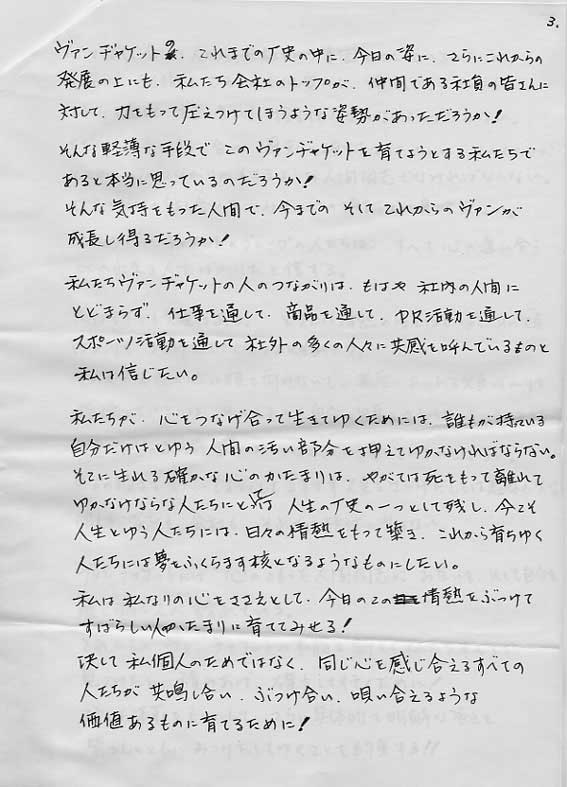 3.
ヴァンヂャケットの、これまでの歴史の中に、今日の姿に、さらにこれからの
発展の上にも、私たち会社のトップが、仲間である社員の皆さんに
対して、力をもって圧えつけてしまうような姿勢があっただろうか!
そんな軽薄な手段でこのヴァンヂャケットを育てようとする私たちで
あると本当に思っているのだろうか!
そんな気持をもった人間で、今までのそしてこれからのヴァンが
成長し得るだろうか!
私たちヴァンヂャケットの人のつながりは、もはや社内の人間に
とどまらず、仕事を通して、商品を通して、PR活動を通して、
スポーツ活動を通して社外の多くの人々に共感を呼んでいるものと
私は信じたい。
私たちが、心をつなげ合って生きてゆくためには、誰もが持っている
自分だけはとゆう人間の汚い部分を押えてゆかなければならない。
そこに生れる確かな心のかたまりは、やがては死をもって離れて
ゆかなけならな人たちにとっては人生の歴史の一つとして残し、今こそ
人生とゆう人たちには、日々の情熱をもって築き、これから育ちゆく
人たちには夢をふくらます核となるようなものにしたい。
私は私なりの心をささえとして、今日のこの情熱をぶつけて
すばらしい人のかたまりに育ててみせる!
決して私個人のためではなく、同じ心を感じ合えるすべての
人たちが共鳴し合い、ぶつけ合い、唄い合えるような
価値あるものに育てるために!